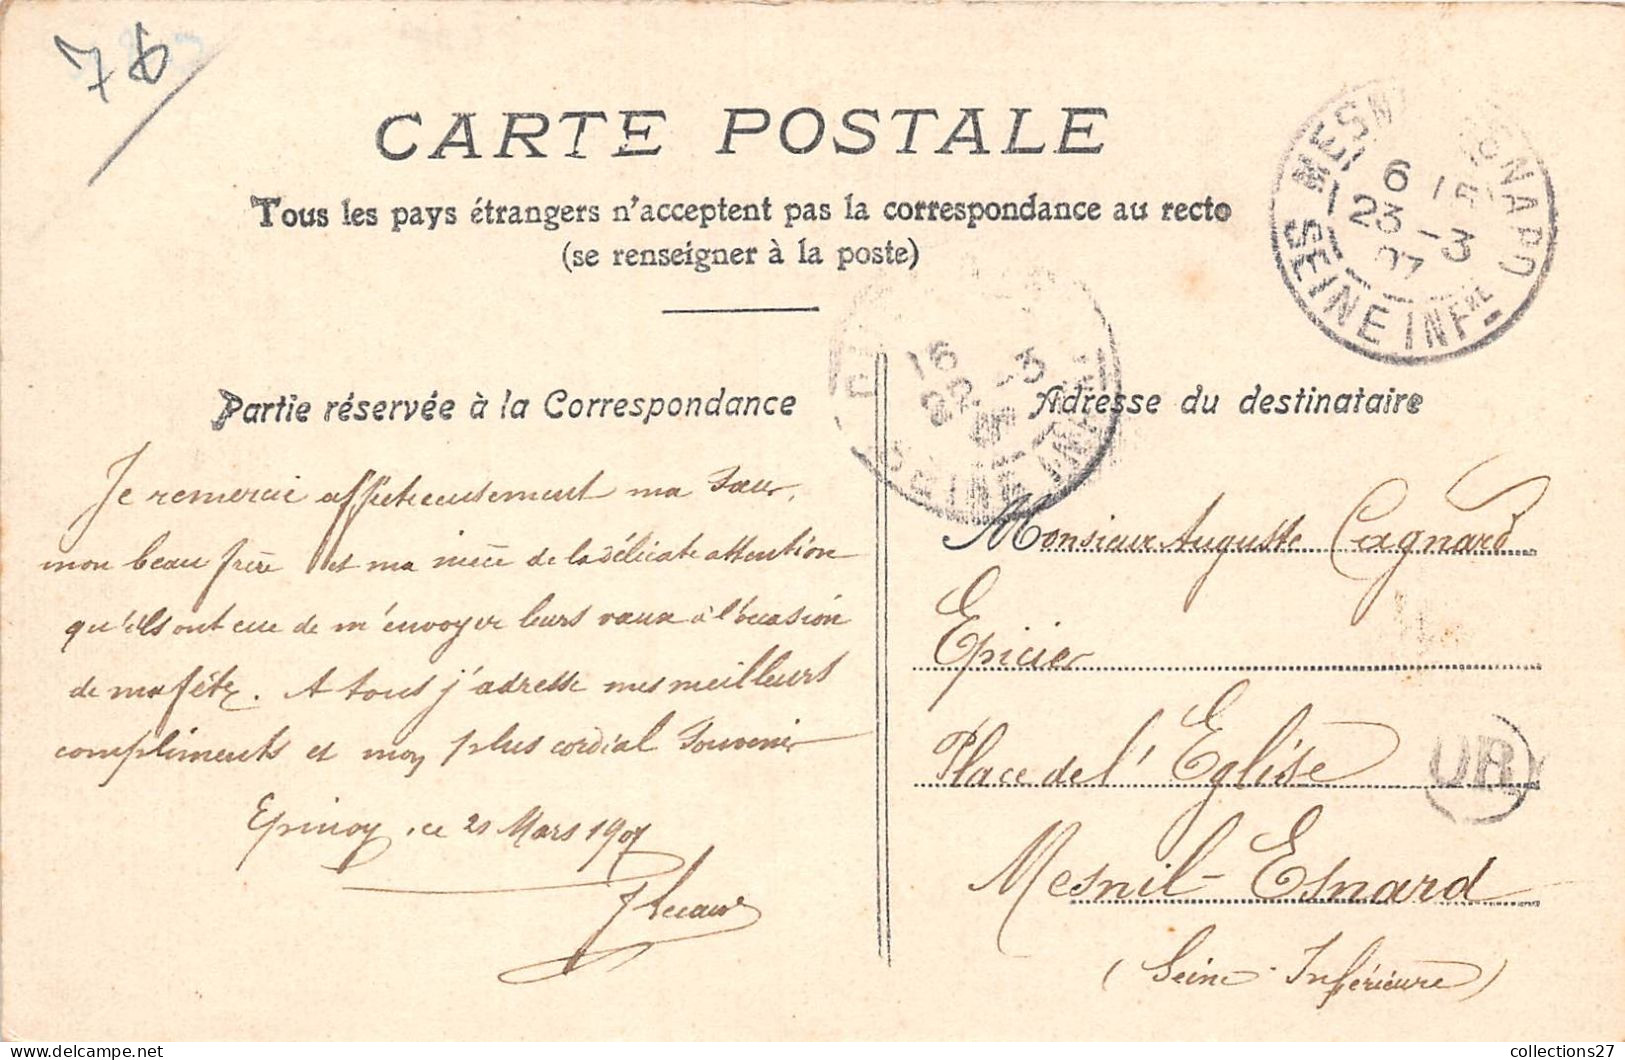 76
CARTE POSTALE
Tous les pays étrangers n'acceptent pas la correspondance au recto
(se renseigner à la poste)
MESNIL ESNARD
6
23 - 3
07
SEINE INFRE
Partie réservée à la Correspondance
Je remercie affectueusement ma sœur,
mon beau frère et ma nièce de la délicate attention
qu'ils ont eue de m'envoyer leurs vœux à l'occasion
de ma fête. A tous j'adresse mes meilleurs
compliments et mon plus cordial souvenir
Epinay, ce 21 Mars 1907
SEINE INF
Adresse du destinataire
Monsieur Auguste Cagnard
Epicier
Place de l'Eglise
OR
Mesnil-Esnard
(Seine-Inférieure)
collections27